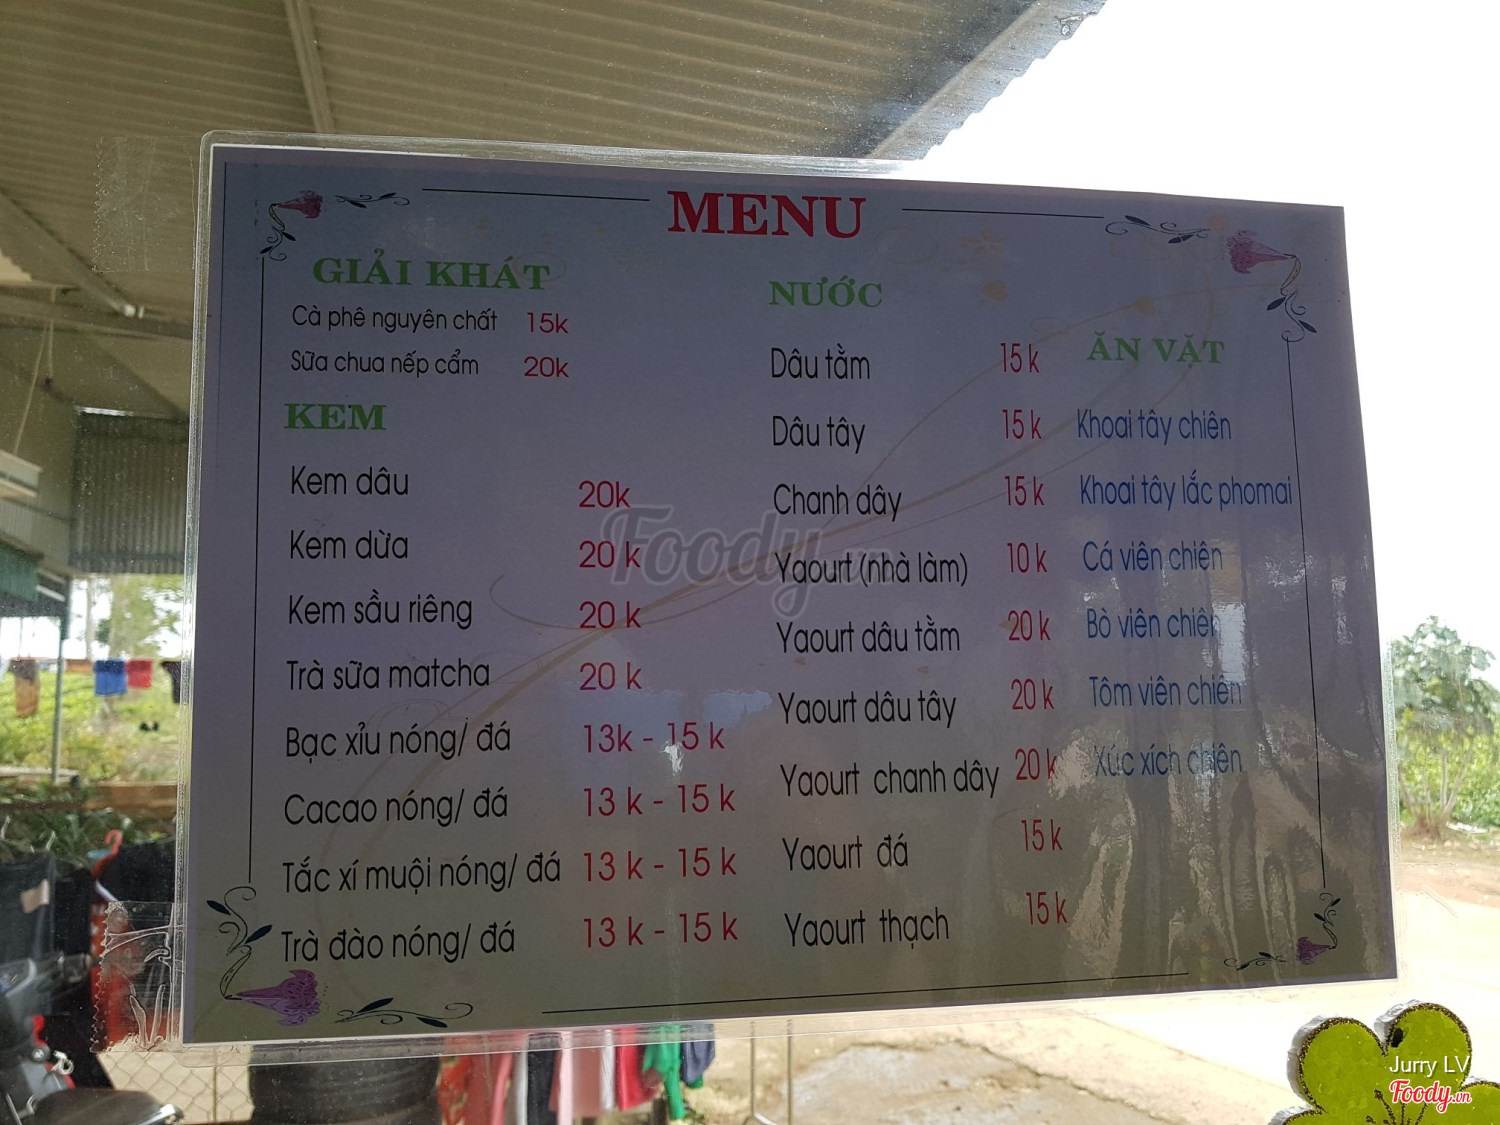 MENU
GIẢI KHÁT
Cà phê nguyên chất 15k
Sữa chua nếp cẩm 20k
KEM
Kem dâu 20k
Kem dừa 20 k
Kem sầu riêng 20 k
Trà sữa matcha 20 k
Bạc xỉu nóng/ đá 13k - 15 k
Cacao nóng/ đá 13 k - 15 k
Tắc xí muội nóng/ đá 13 k - 15 k
Trà đào nóng/ đá 13 k - 15 k
NƯỚC
Dâu tằm 15 k
Dâu tây 15 k
Chanh dây 15 k
Yaourt (nhà làm) 10 k
Yaourt dâu tằm 20 k
Yaourt dâu tây 20 k
Yaourt chanh dây 20 k
Yaourt đá 15 k
Yaourt thạch 15 k
ĂN VẶT
Khoai tây chiên
Khoai tây lắc phomai
Cá viên chiên
Bò viên chiên
Tôm viên chiên
Xúc xích chiên
Foody.vn
Jurry LV
Foody.vn